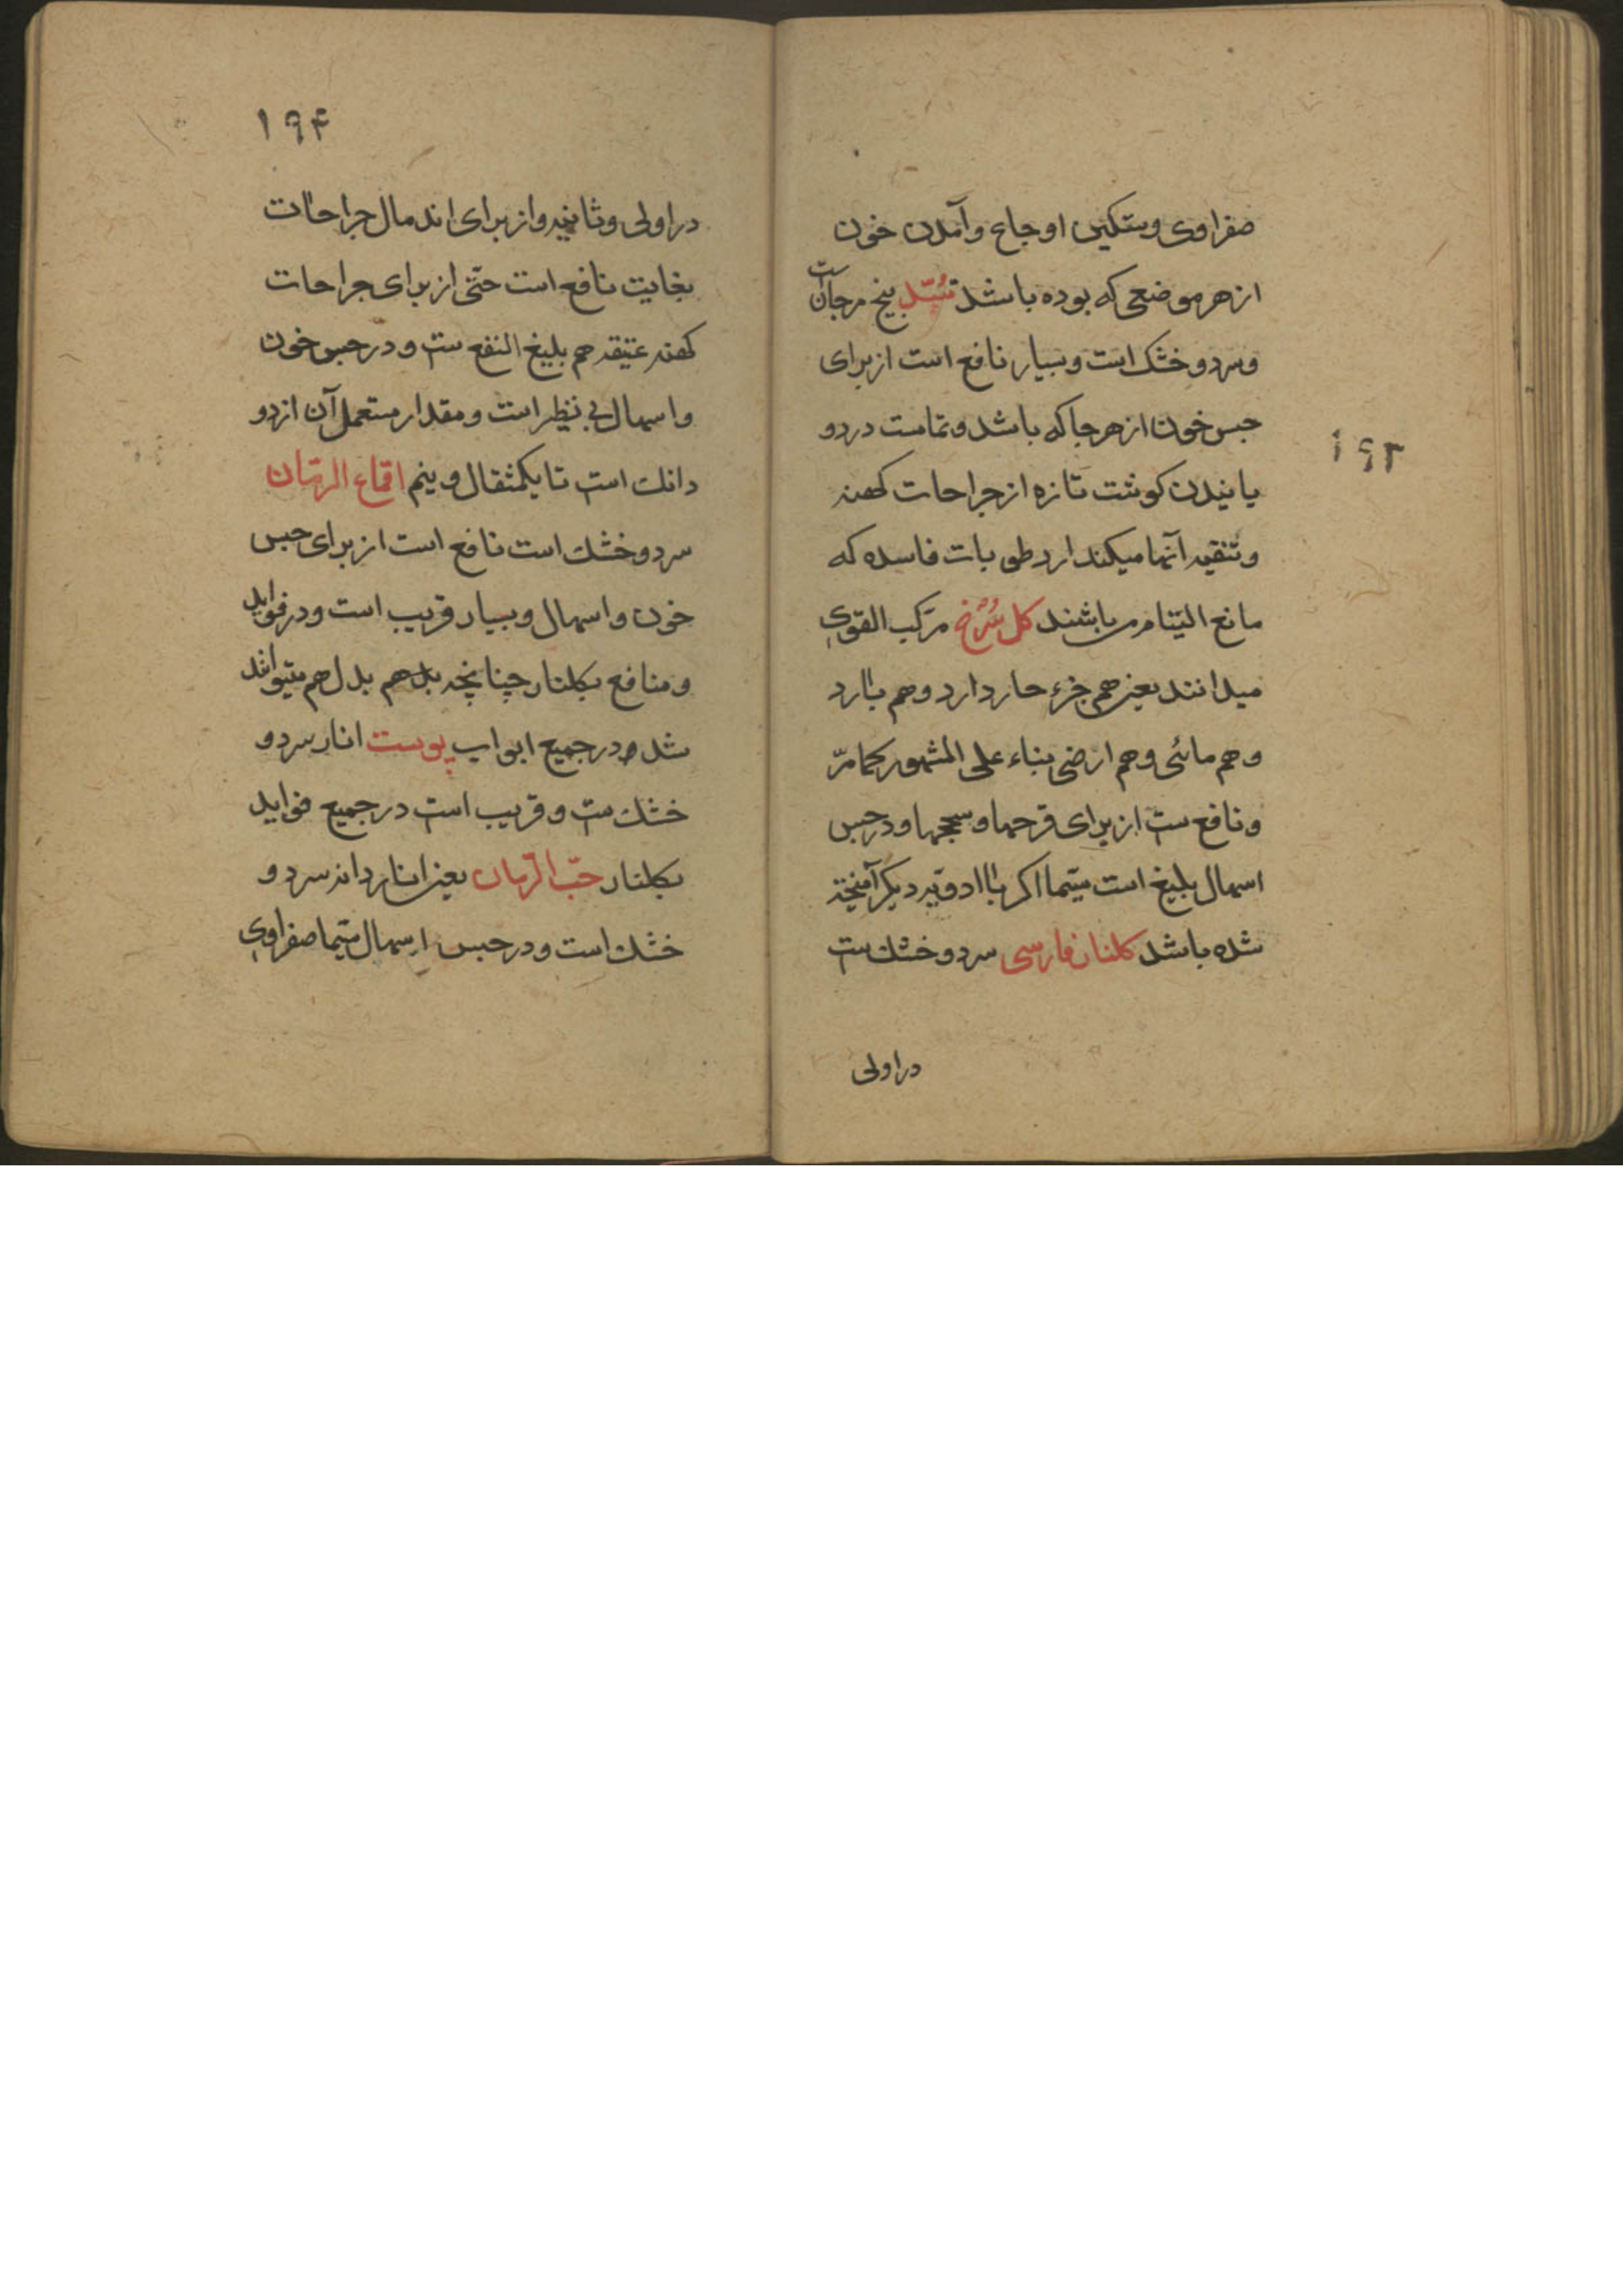 ۱۹۳
صفراوی و تسکین اوجاع و آمدن خون
از هر موضعی که بوده باشد بسّد بیخ مرجانست
و سرد و خشک است و بسیار نافع است از برای
حبس خون از هر جا که باشد و تماست در رو
یانیدن کوشت تازه از جراحات کهنه
و تنقیه آنها میکند از رطوبات فاسده که
مانع التیام می باشند کل سُرْخ مرکب القوی
میدانند یعنی هم جزء حار دارد و هم بارد
و هم مائی و هم ارضی بناء علی المشهور کمامرّ
و نافع ست از برای قرحها و سحجها و در حبس
اسهال بلیغ است سیّما اکر با ادویه دیکر آمیخته
شده باشد کلنار فارسی سرد و خشک ست
در اولی
۱۹۴
در اولی و ثانیه و از برای اندمال جراحات
بغایت نافع است حتّی از برای جراحات
کهنه عتیقه هم بلیغ النفع ست و در حبس خون
و اسهال بی نظیر است و مقدار مستعمل آن از دو
دانک است تا یکمثقال و نیم اقماع الرمّان
سرد و خشک است نافع است از برای حبس
خون و اسهال و بسیار قریب است و در فواید
و منافع بکلنار چنانچه بدل هم میتواند
شد در جمیع ابواب پوست انار سرد و
خشک ست و قریب است در جمیع فواید
بکلنار حبّ الرّمان یعنی انار دانه سرد و
خشک است و در حبس اسهال سیّما صفراوی